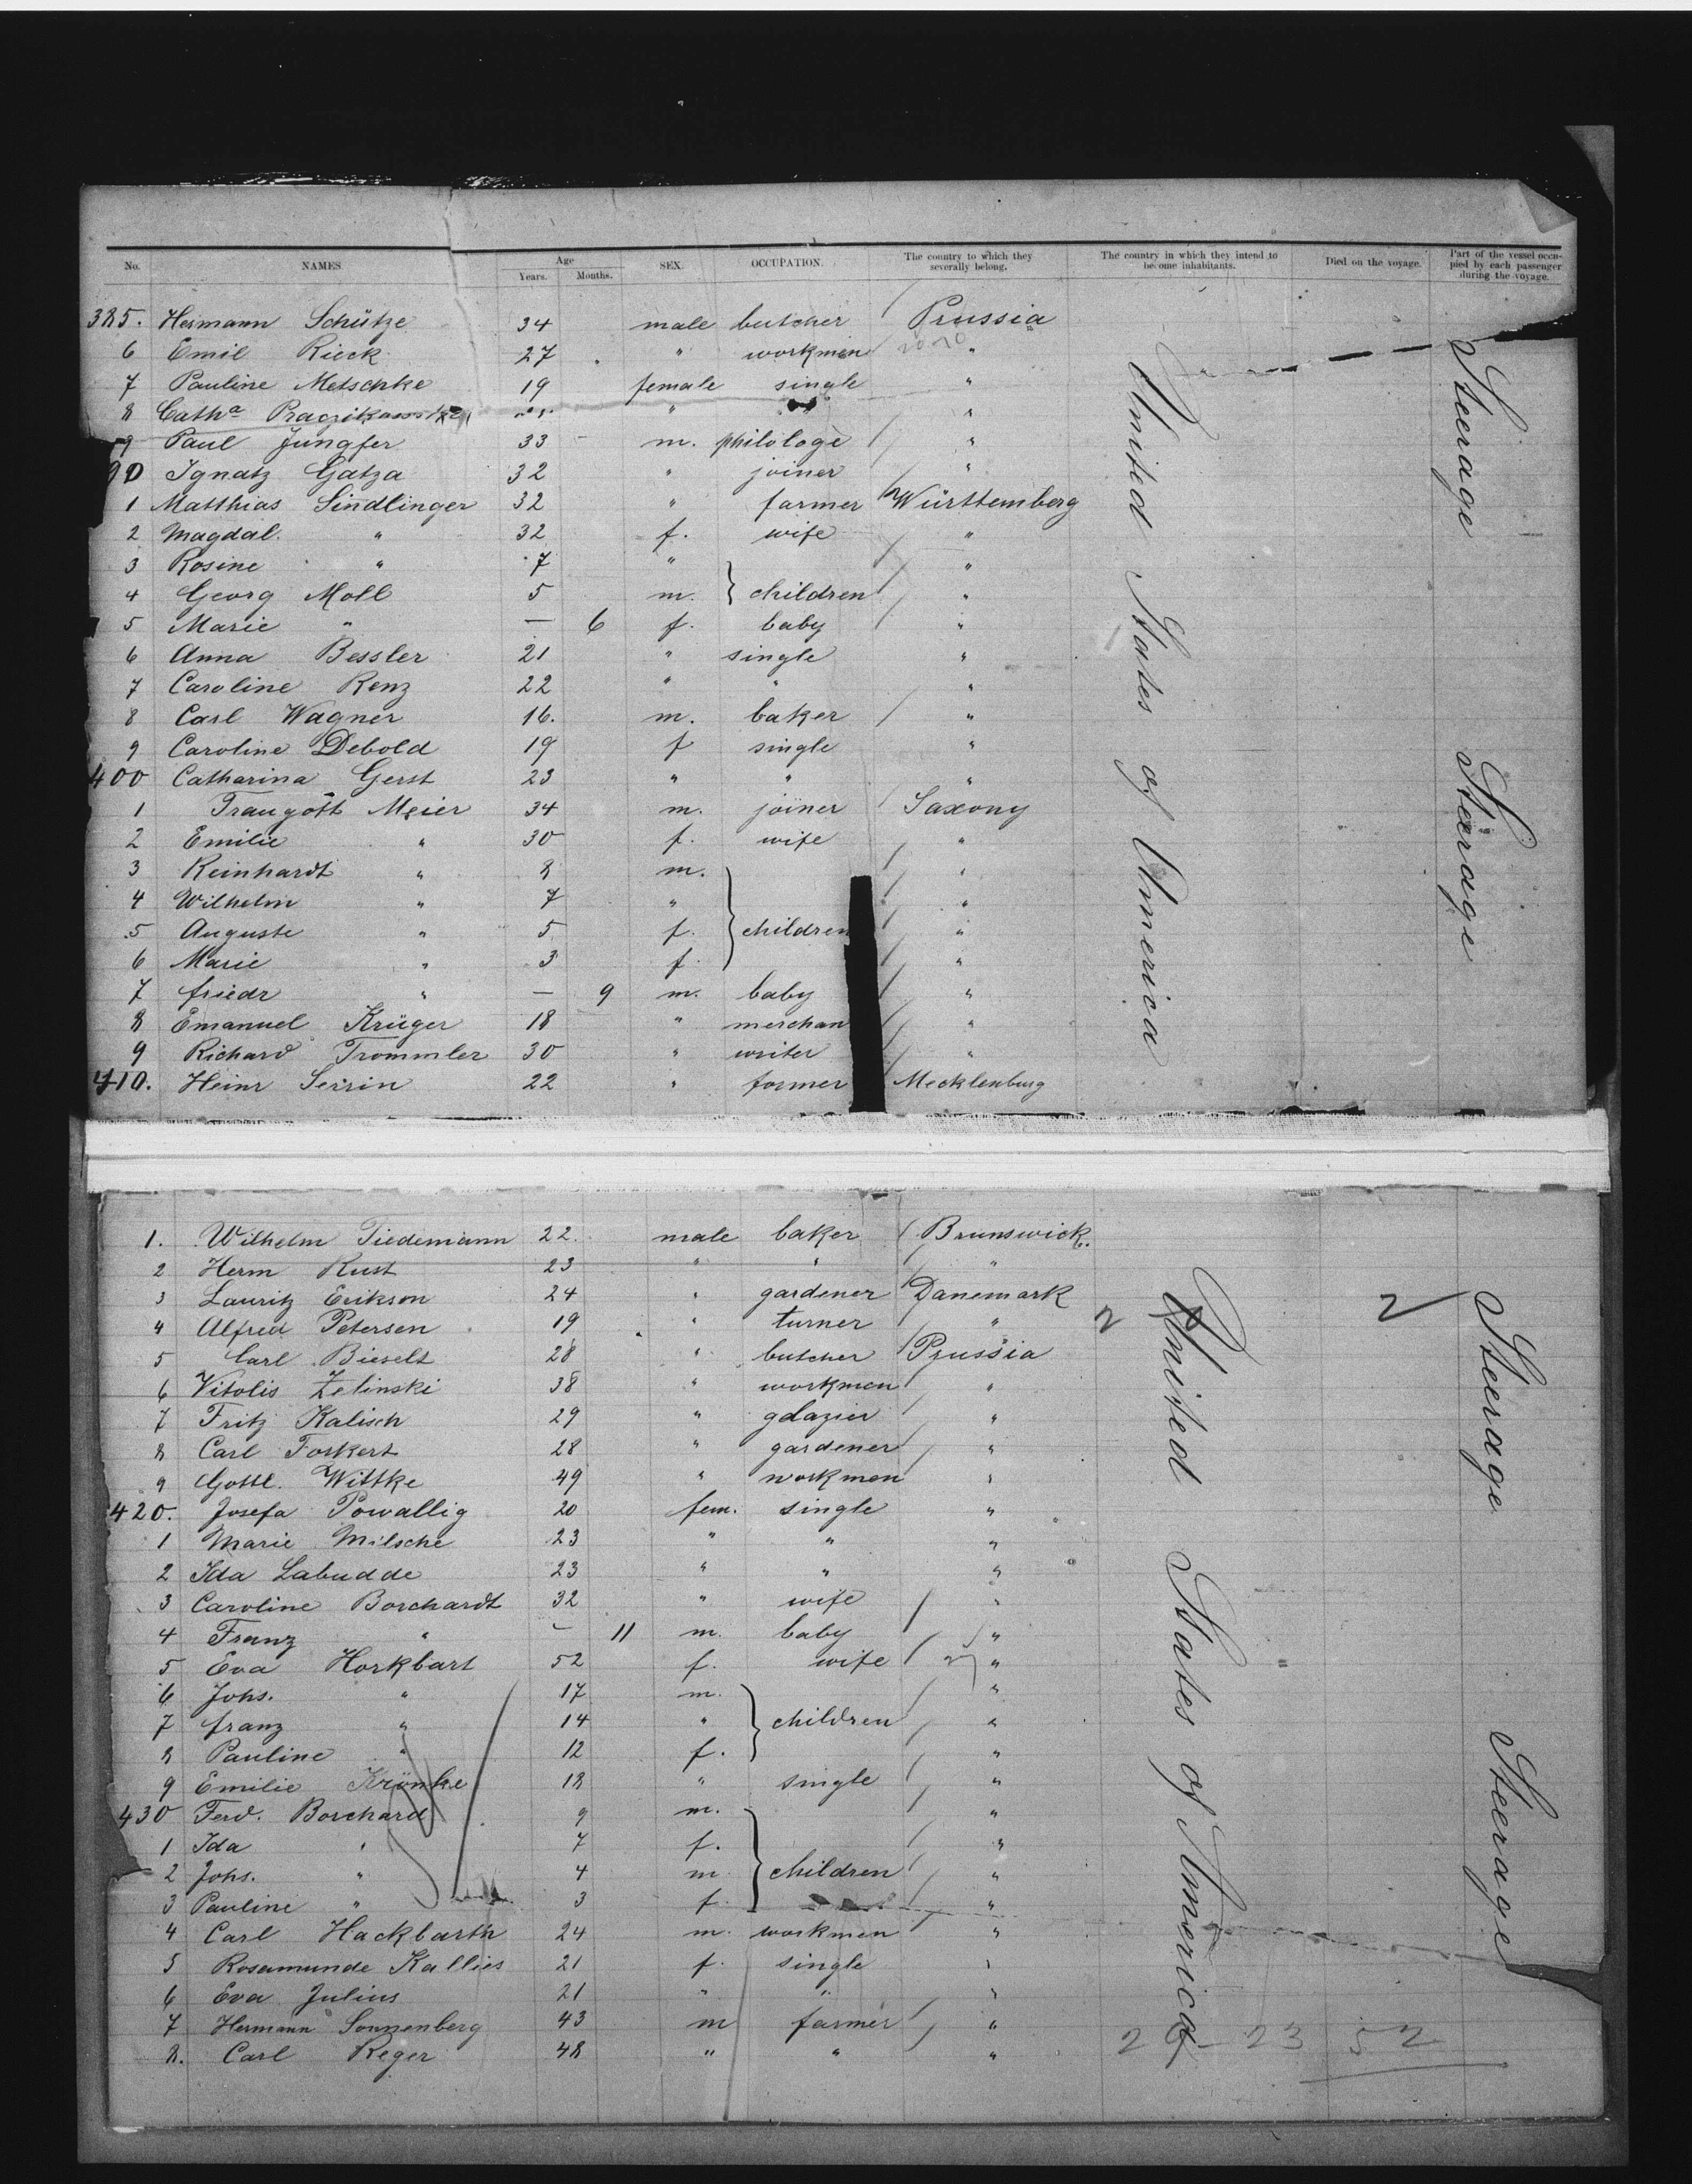 No. NAMES Age Years. Months. SEX. OCCUPATION. The country to which they severally belong. The country in which they intend to become inhabitants. Died on the voyage. Part of the vessel occupied by each passenger during the voyage.
385. Hermann Schütze 34 male butcher Prussia
6 Emil Rieck 27 " workmen "
7 Pauline Metschke 19 female single "
8 Catha " "
9 Paul Jungfer 33 - m. philologe "
90 Ignatz Gatza 32 " joiner "
1 Matthias Sindlinger 32 " farmer Württemberg
2 Magdal. " 32 f. wife "
3 Rosine " 7 " "
4 Georg Moll 5 m. } children "
5 Marie " — 6 f. baby "
6 Anna Bessler 21 " single "
7 Caroline Renz 22 " " "
8 Carl Wagner 16. m. baker "
9 Caroline Debold 19 f single "
400 Catharina Gerst 23 " " "
1 Traugott Meier 34 m. joiner Saxony
2 Emilie " 30 f. wife "
3 Reinhardt " 8 m. "
4 Wilhelm " 7 " "
5 Auguste " 5 f. } children "
6 Marie " 3 f. "
7 friedr " — 9 m. baby "
8 Emanuel Krüger 18 " merchan "
9 Richard Trommler 30 " writer "
410. Heinr Serrin 22 " farmer Mecklenburg
United States of America
Steerage
Steerage
1. Wilhelm Tiedemann 22. male baker Brunswick.
2 Herm Rust 23 " " "
3 Lauritz Erikson 24 " gardener Danemark
4 Alfred Petersen 19 " turner " 2 2
5 Carl Bieselt 28 " butcher Prussia
6 Vitolis Zelinski 38 " workmen "
7 Fritz Kalisch 29 " glazier "
8 Carl Forkert 28 " gardener "
9 Gottl. Wittke 49 " workmen "
420. Josefa Powallig 20 fem. single "
1 Marie Milsche 23 " " "
2 Ida Labudde 23 " " "
3 Caroline Borchardt 32 " wife "
4 Franz " — 11 m. baby "
5 Eva Horkbart 52 f. wife "
6 Johs. " 17 m. "
7 franz " 14 " } children "
8 Pauline " 12 f. "
9 Emilie Krönke 18 " single "
430 Ferd. Borchard 9 m. "
1 Ida " 7 f. "
2 Johs. " 4 m } children "
3 Pauline " 3 f. "
4 Carl Hackbarth 24 m. workmen "
5 Rosamunde Kallies 21 f. single "
6 Eva Julius 21 " " "
7 Hermann Sonnenberg 43 m farmer "
8. Carl Reger 48 " " "
United States of America
Steerage
Steerage
23 52